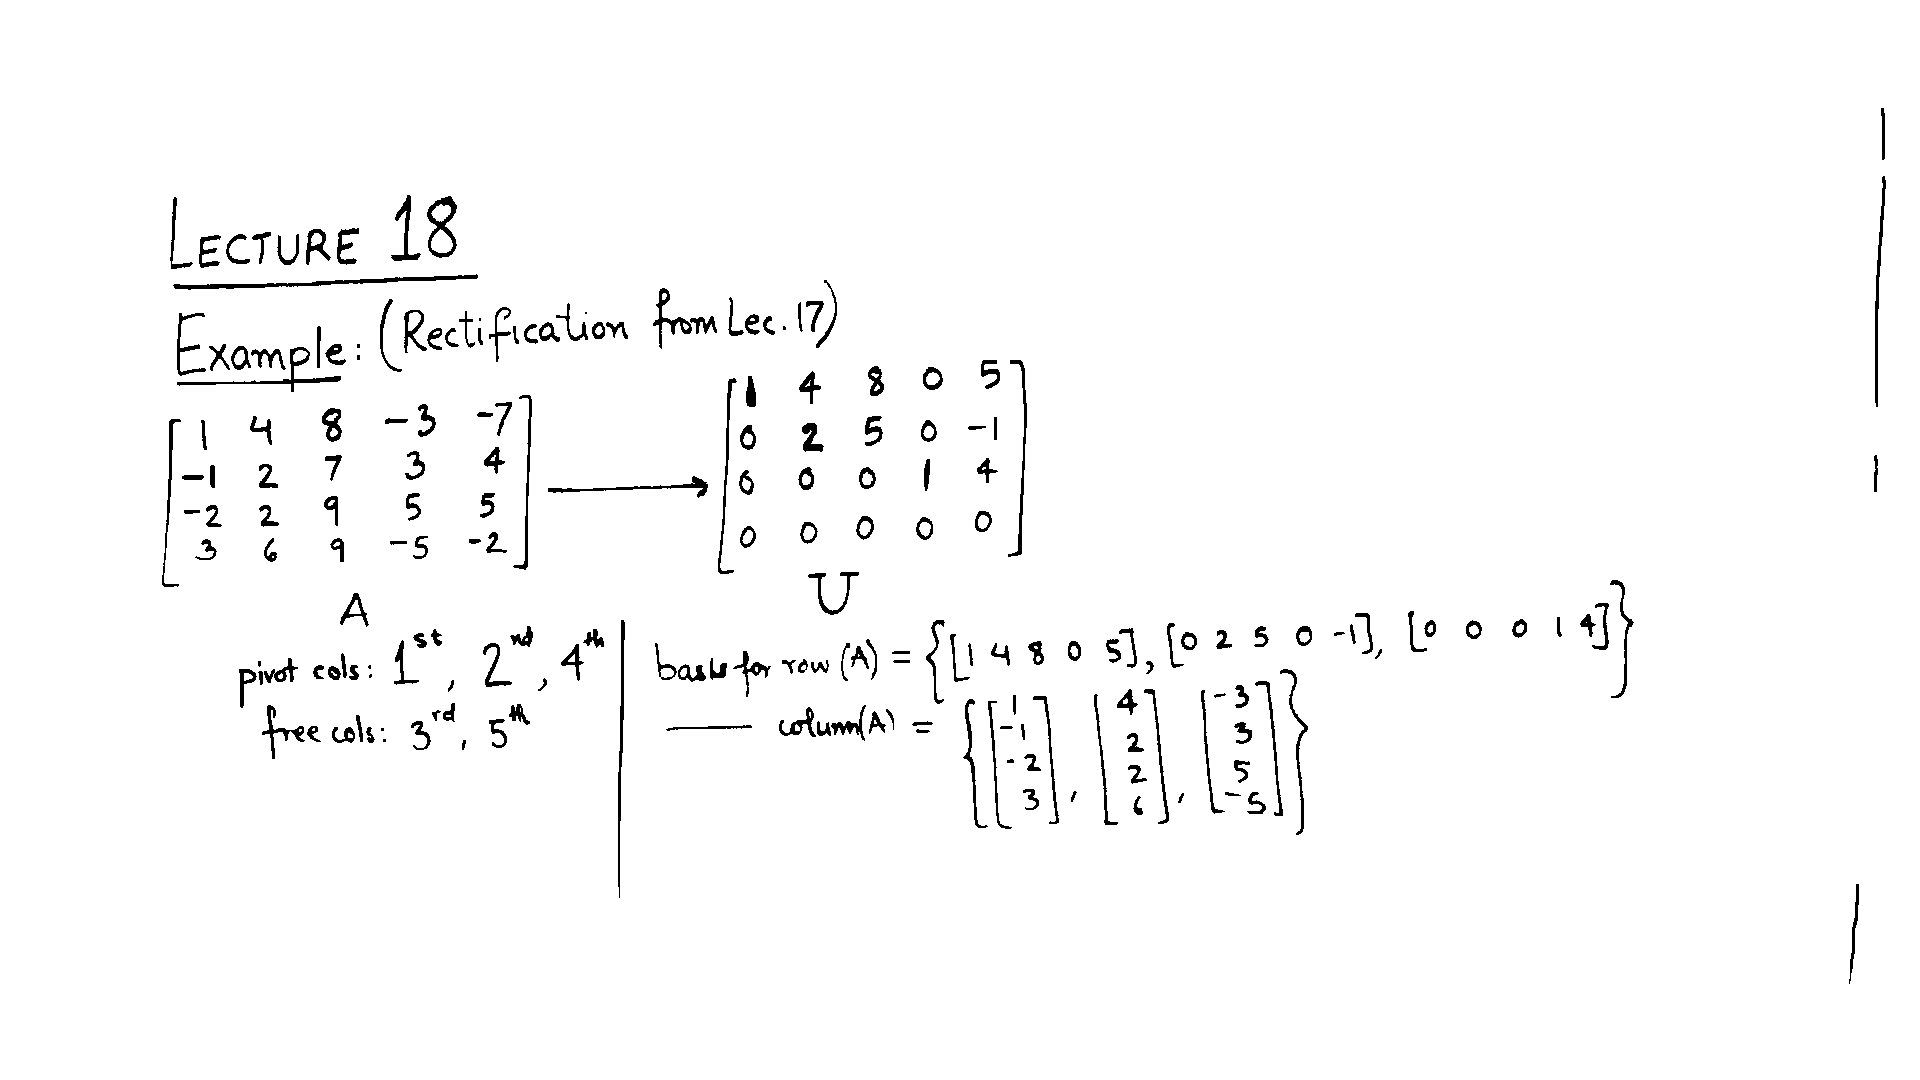 LECTURE 18
Example: (Rectification from Lec. 17)
[1 4 8 -3 -7
-1 2 7 3 4
-2 2 9 5 5
3 6 9 -5 -2]
A
[1 4 8 0 5
0 2 5 0 -1
0 0 0 1 4
0 0 0 0 0]
U
pivot cols: 1st, 2nd, 4th
free cols: 3rd, 5th
basis for row (A) = {[1 4 8 0 5], [0 2 5 0 -1], [0 0 0 1 4]}
—— column(A) = {[1 -1 -2 3], [4 2 2 6], [-3 3 5 -5]}